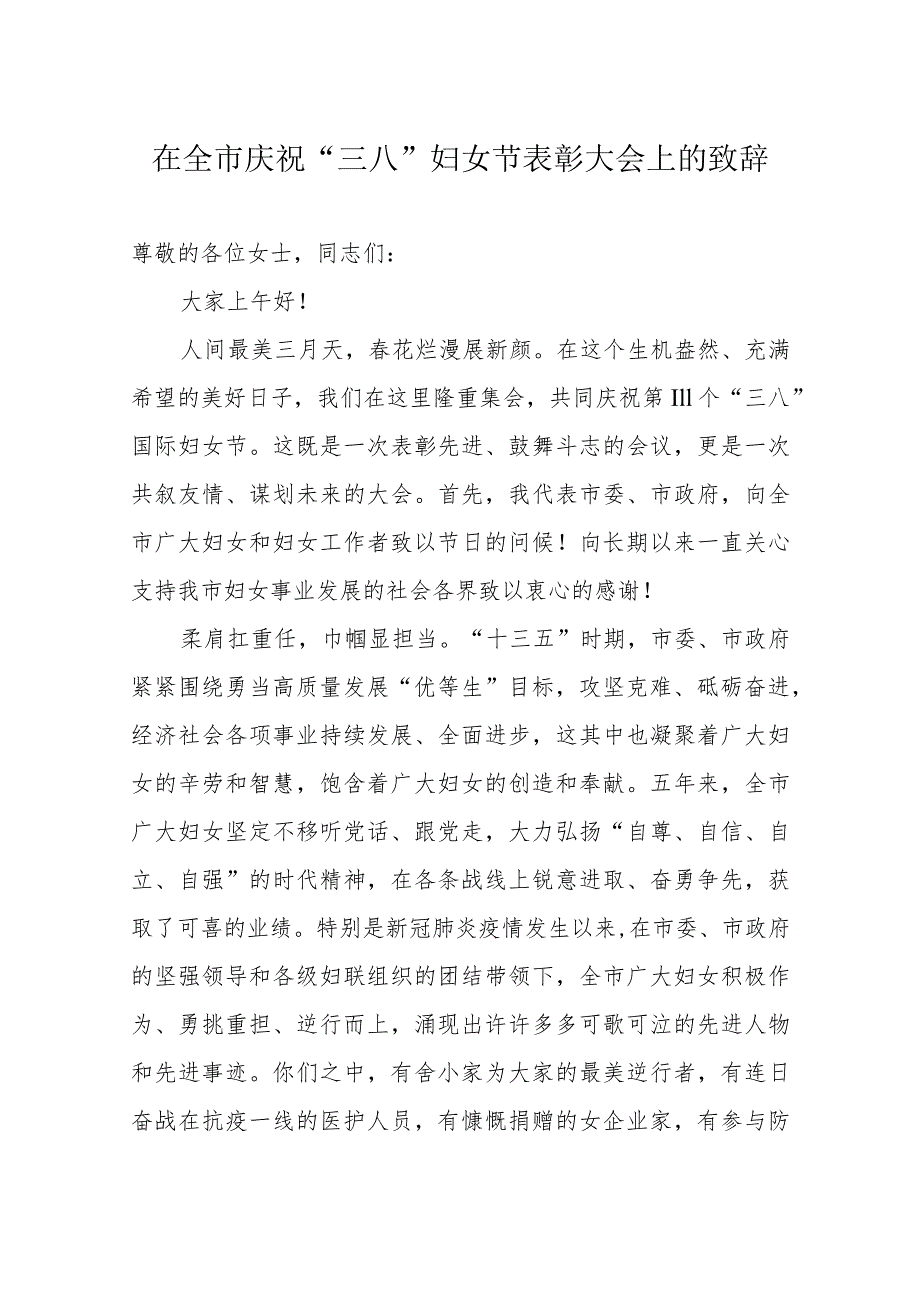 在全市庆祝“三八”妇女节表彰大会上的致辞
尊敬的各位女士，同志们：
大家上午好！
人间最美三月天，春花烂漫展新颜。在这个生机盎然、充满
希望的美好日子，我们在这里隆重集会，共同庆祝第Ill个“三八”
国际妇女节。这既是一次表彰先进、鼓舞斗志的会议，更是一次
共叙友情、谋划未来的大会。首先，我代表市委、市政府，向全
市广大妇女和妇女工作者致以节日的问候！向长期以来一直关心
支持我市妇女事业发展的社会各界致以衷心的感谢！
柔肩扛重任，巾帼显担当。“十三五”时期，市委、市政府
紧紧围绕勇当高质量发展“优等生”目标，攻坚克难、砥砺奋进，
经济社会各项事业持续发展、全面进步，这其中也凝聚着广大妇
女的辛劳和智慧，饱含着广大妇女的创造和奉献。五年来，全市
广大妇女坚定不移听党话、跟党走，大力弘扬“自尊、自信、自
立、自强”的时代精神，在各条战线上锐意进取、奋勇争先，获
取了可喜的业绩。特别是新冠肺炎疫情发生以来,在市委、市政府
的坚强领导和各级妇联组织的团结带领下，全市广大妇女积极作
为、勇挑重担、逆行而上，涌现出许许多多可歌可泣的先进人物
和先进事迹。你们之中，有舍小家为大家的最美逆行者，有连日
奋战在抗疫一线的医护人员，有慷慨捐赠的女企业家，有参与防